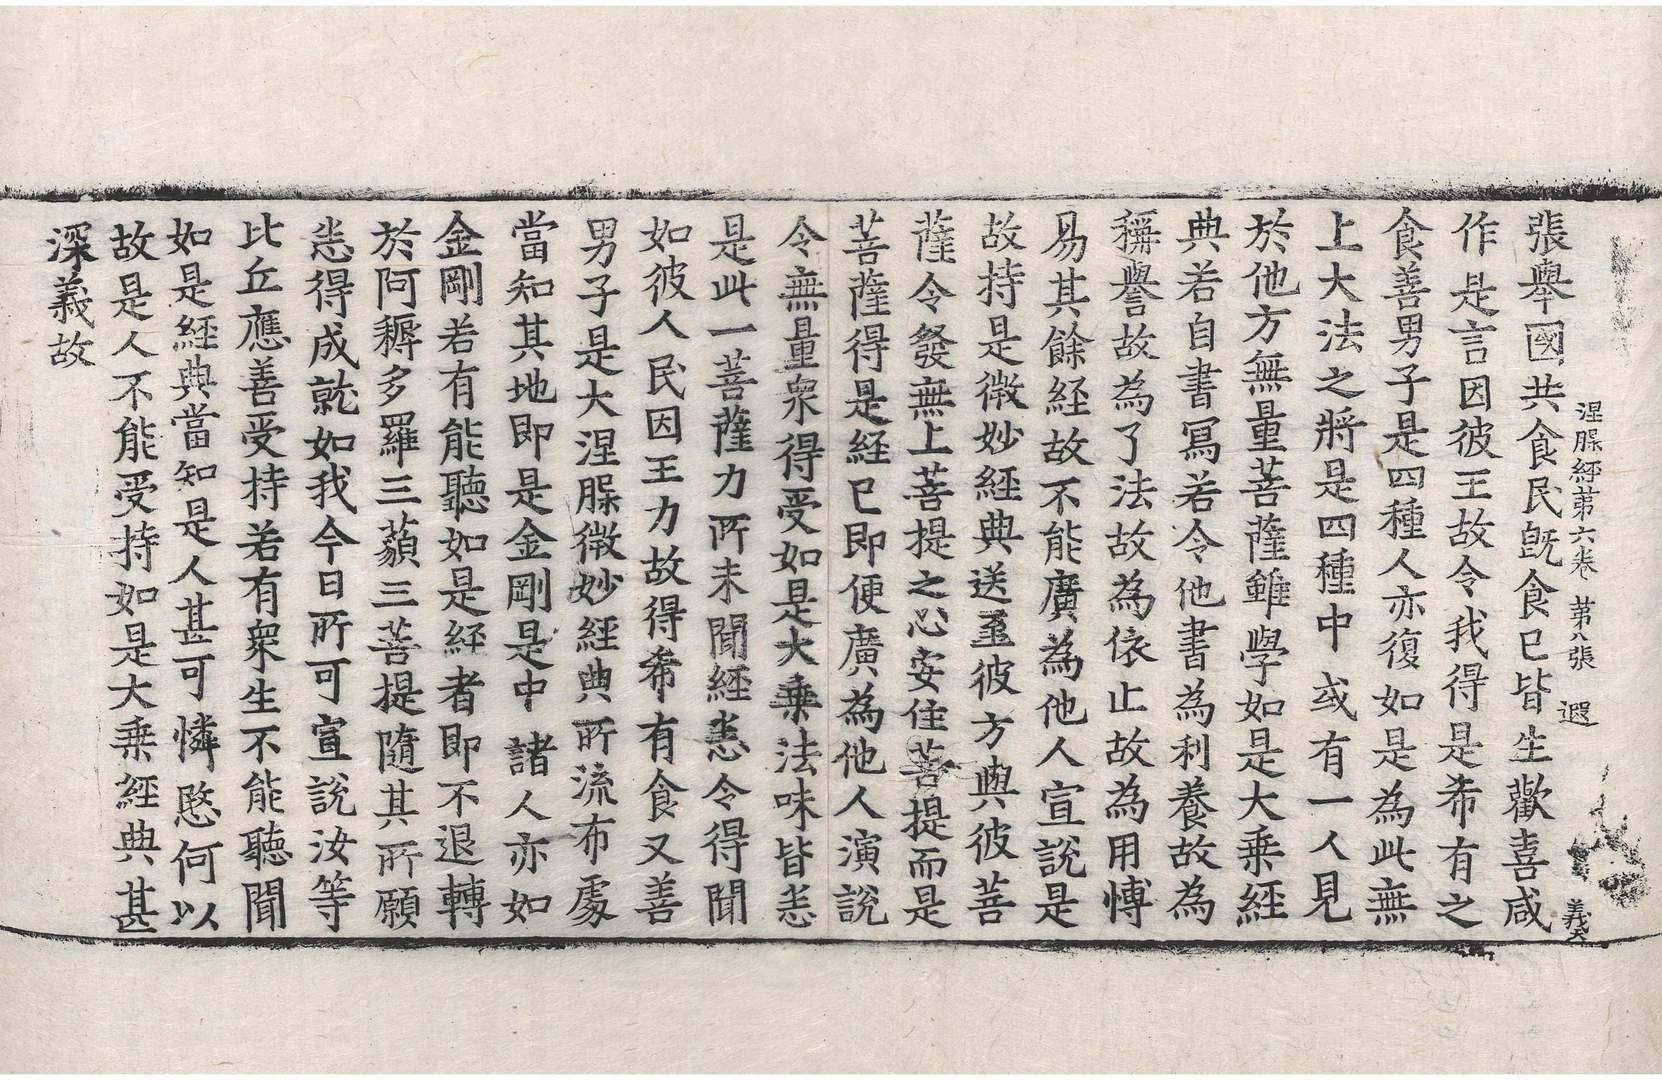 涅槃經第六卷 第八張 遐 義大
張舉國共食民既食已皆生歡喜咸
作是言因彼王故令我得是希有之
食善男子是四種人亦復如是為此無
上大法之將是四種中或有一人見
於他方無量菩薩雖學如是大乗經
典若自書寫若令他書為利養故為
稱譽故為了法故為依止故為用愽
易其餘経故不能廣為他人宣說是
故持是微妙経典送至彼方與彼菩
薩令發無上菩提之心安住菩提而是
菩薩得是経已即便廣為他人演說
令無量衆得受如是大乗法味皆悉
是此一菩薩力所未聞經悉令得聞
如彼人民因王力故得希有食又善
男子是大涅槃微妙経典所流布處
當知其地即是金剛是中諸人亦如
金剛若有能聽如是経者即不退轉
於阿耨多羅三藐三菩提隨其所願
悉得成就如我今日所可宣說汝等
比丘應善受持若有衆生不能聽聞
如是経典當知是人甚可憐愍何以
故是人不能受持如是大乗經典甚
深義故